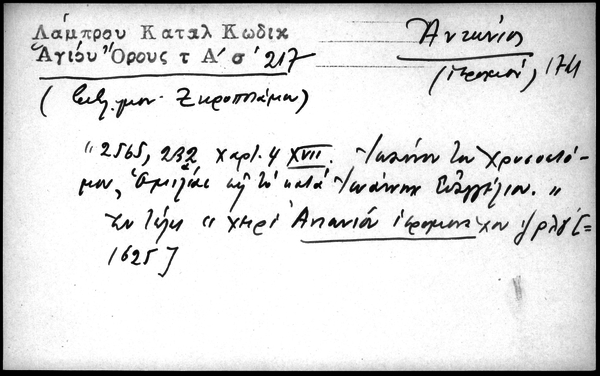 Λάμπρου Καταλ Κωδικ
Ἁγίου Ὄρους τ Α' σ' 217
Ἀντώνιος
(ἱερομον) 1711
(Βιβλ. μον. Ξηροποτάμου)
"2565, 232 χαρτ. 4 XVII. Ἰωάννου τοῦ Χρυσοστό-
μου, Ὁμιλίαι εἰς τὸ κατὰ Ἰωάννην Εὐαγγέλιον."
Ἐν τέλει " χειρὶ Ἀντωνίου ἱερομονάχου
1625]